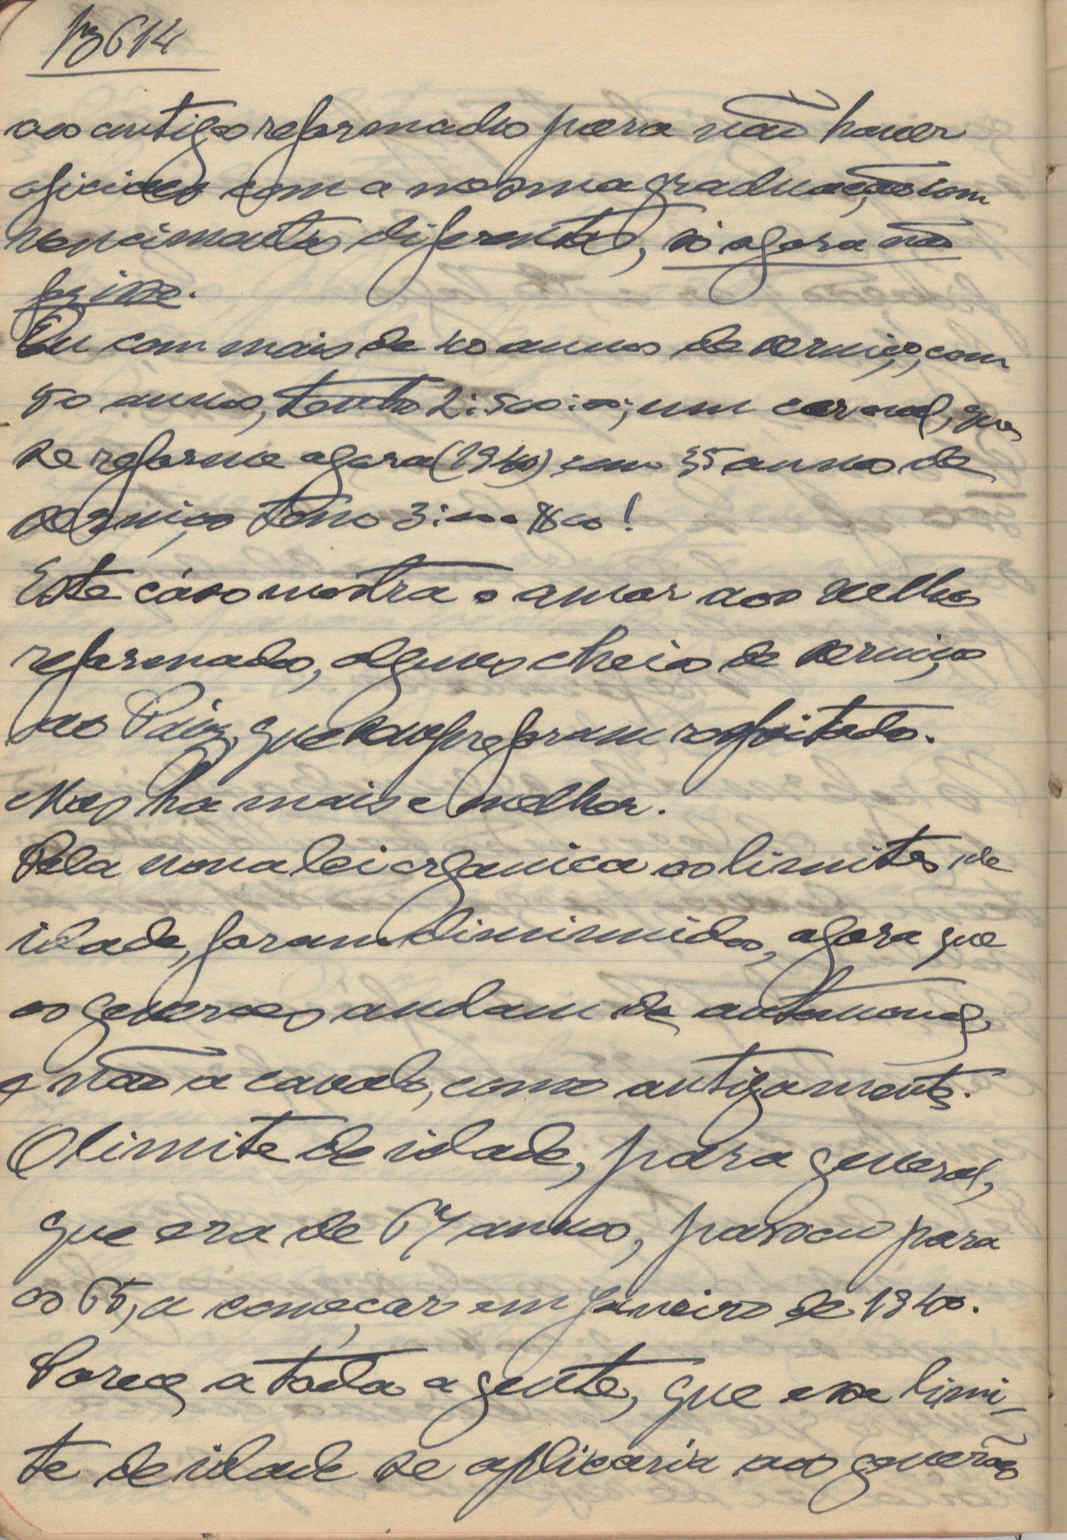 13614
aos antigos reformados para não haver
oficiaes com a mesma graduação com
vencimentos diferentes, só agora não
se
Eu com mais de 40 annos de serviço, com
50 annos, tenho 2:500:00; um coronel, que
se reforme agora (1940) com 35 annos de
serviço tem 3:000$00!
Este cáso mostra o amor aos velhos
reformados, alguns cheios de serviços
ao Paiz, que foram
Mas ha mais e melhor.
Pela nova lei organica os limites de
idade, foram diminuidos, agora que
os generaes andam de automovel,
e não a cavalo, como antigamente.
O limite de idade, para general,
que era de 67 annos, passou para
os 65, a começar em Janeiro de 1940.
Parece a toda a gente, que esse limi-
te de idade se aplicaria aos generaes